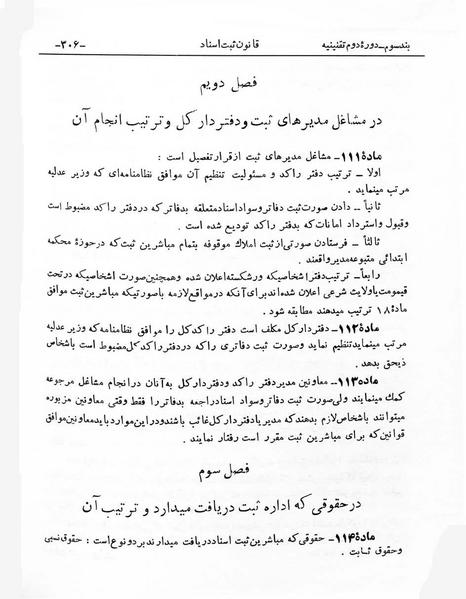 بند سوم ـ دورهٔ دوم تقنینیه قانون ثبت اسناد -۳۰۶-
فصل دویم
در مشاغل مدیرهای ثبت و دفتردار کل و ترتیب انجام آن
مادهٔ ۱۱۱ـ مشاغل مدیرهای ثبت از قرار تفصیل است :
اولا ـ ترتیب دفتر راکد و مسئولیت تنظیم آن موافق نظامنامه‌ای که وزیر عدلیه
مرتب مینماید .
ثانیاً ـ دادن صورت ثبت دفاتر و سواد اسناد متعلقه بدفاتر که در دفتر راکد مضبوط است
وقبول واسترداد امانات که بدفتر راکد تودیع شده است .
ثالثاً ـ فرستادن صورتی از ثبت املاک موقوفه بتمام مباشرین ثبت که در حوزهٔ محکمه
ابتدائی متبوعه مدیر واقعند .
رابعاً ـ ترتیب دفتر اشخاصیکه ورشکسته اعلان شده وهمچنین صورت اشخاصیکه در تحت
قیمومت یا ولایت شرعی اعلان شده‌اند برای آنکه در مواقع لازمه با صورتیکه مباشرین ثبت موافق
مادهٔ ۱۸ ترتیب میدهند مطابقه شود .
مادهٔ ۱۱۲ـ دفتردار کل مکلف است دفتر راکد کل را موافق نظامنامه که وزیر عدلیه
مرتب مینماید تنظیم نماید وصورت ثبت دفاتری را که در دفتر راکد کل مضبوط است باشخاص
ذیحق بدهد .
ماده ۱۱۳ـ معاونین مدیر دفتر راکد ودفتردار کل به آنان در انجام مشاغل مرجوعه
کمک مینمایند ولی صورت ثبت دفاتر و سواد اسناد راجعه بدفاتر را فقط وقتی معاونین مزبوره
میتوانند باشخاص لازم بدهند که مدیر یا دفتردار کل غائب باشند و در این موارد باید معاونین موافق
قوانین که برای مباشرین ثبت مقرر است رفتار نمایند .
فصل سوم
در حقوقی که اداره ثبت دریافت میدارد و ترتیب آن
مادهٔ ۱۱۴ـ حقوقی که مباشرین ثبت اسناد دریافت میدارند بر دو نوع است : حقوق نسبی
وحقوق ثابت .